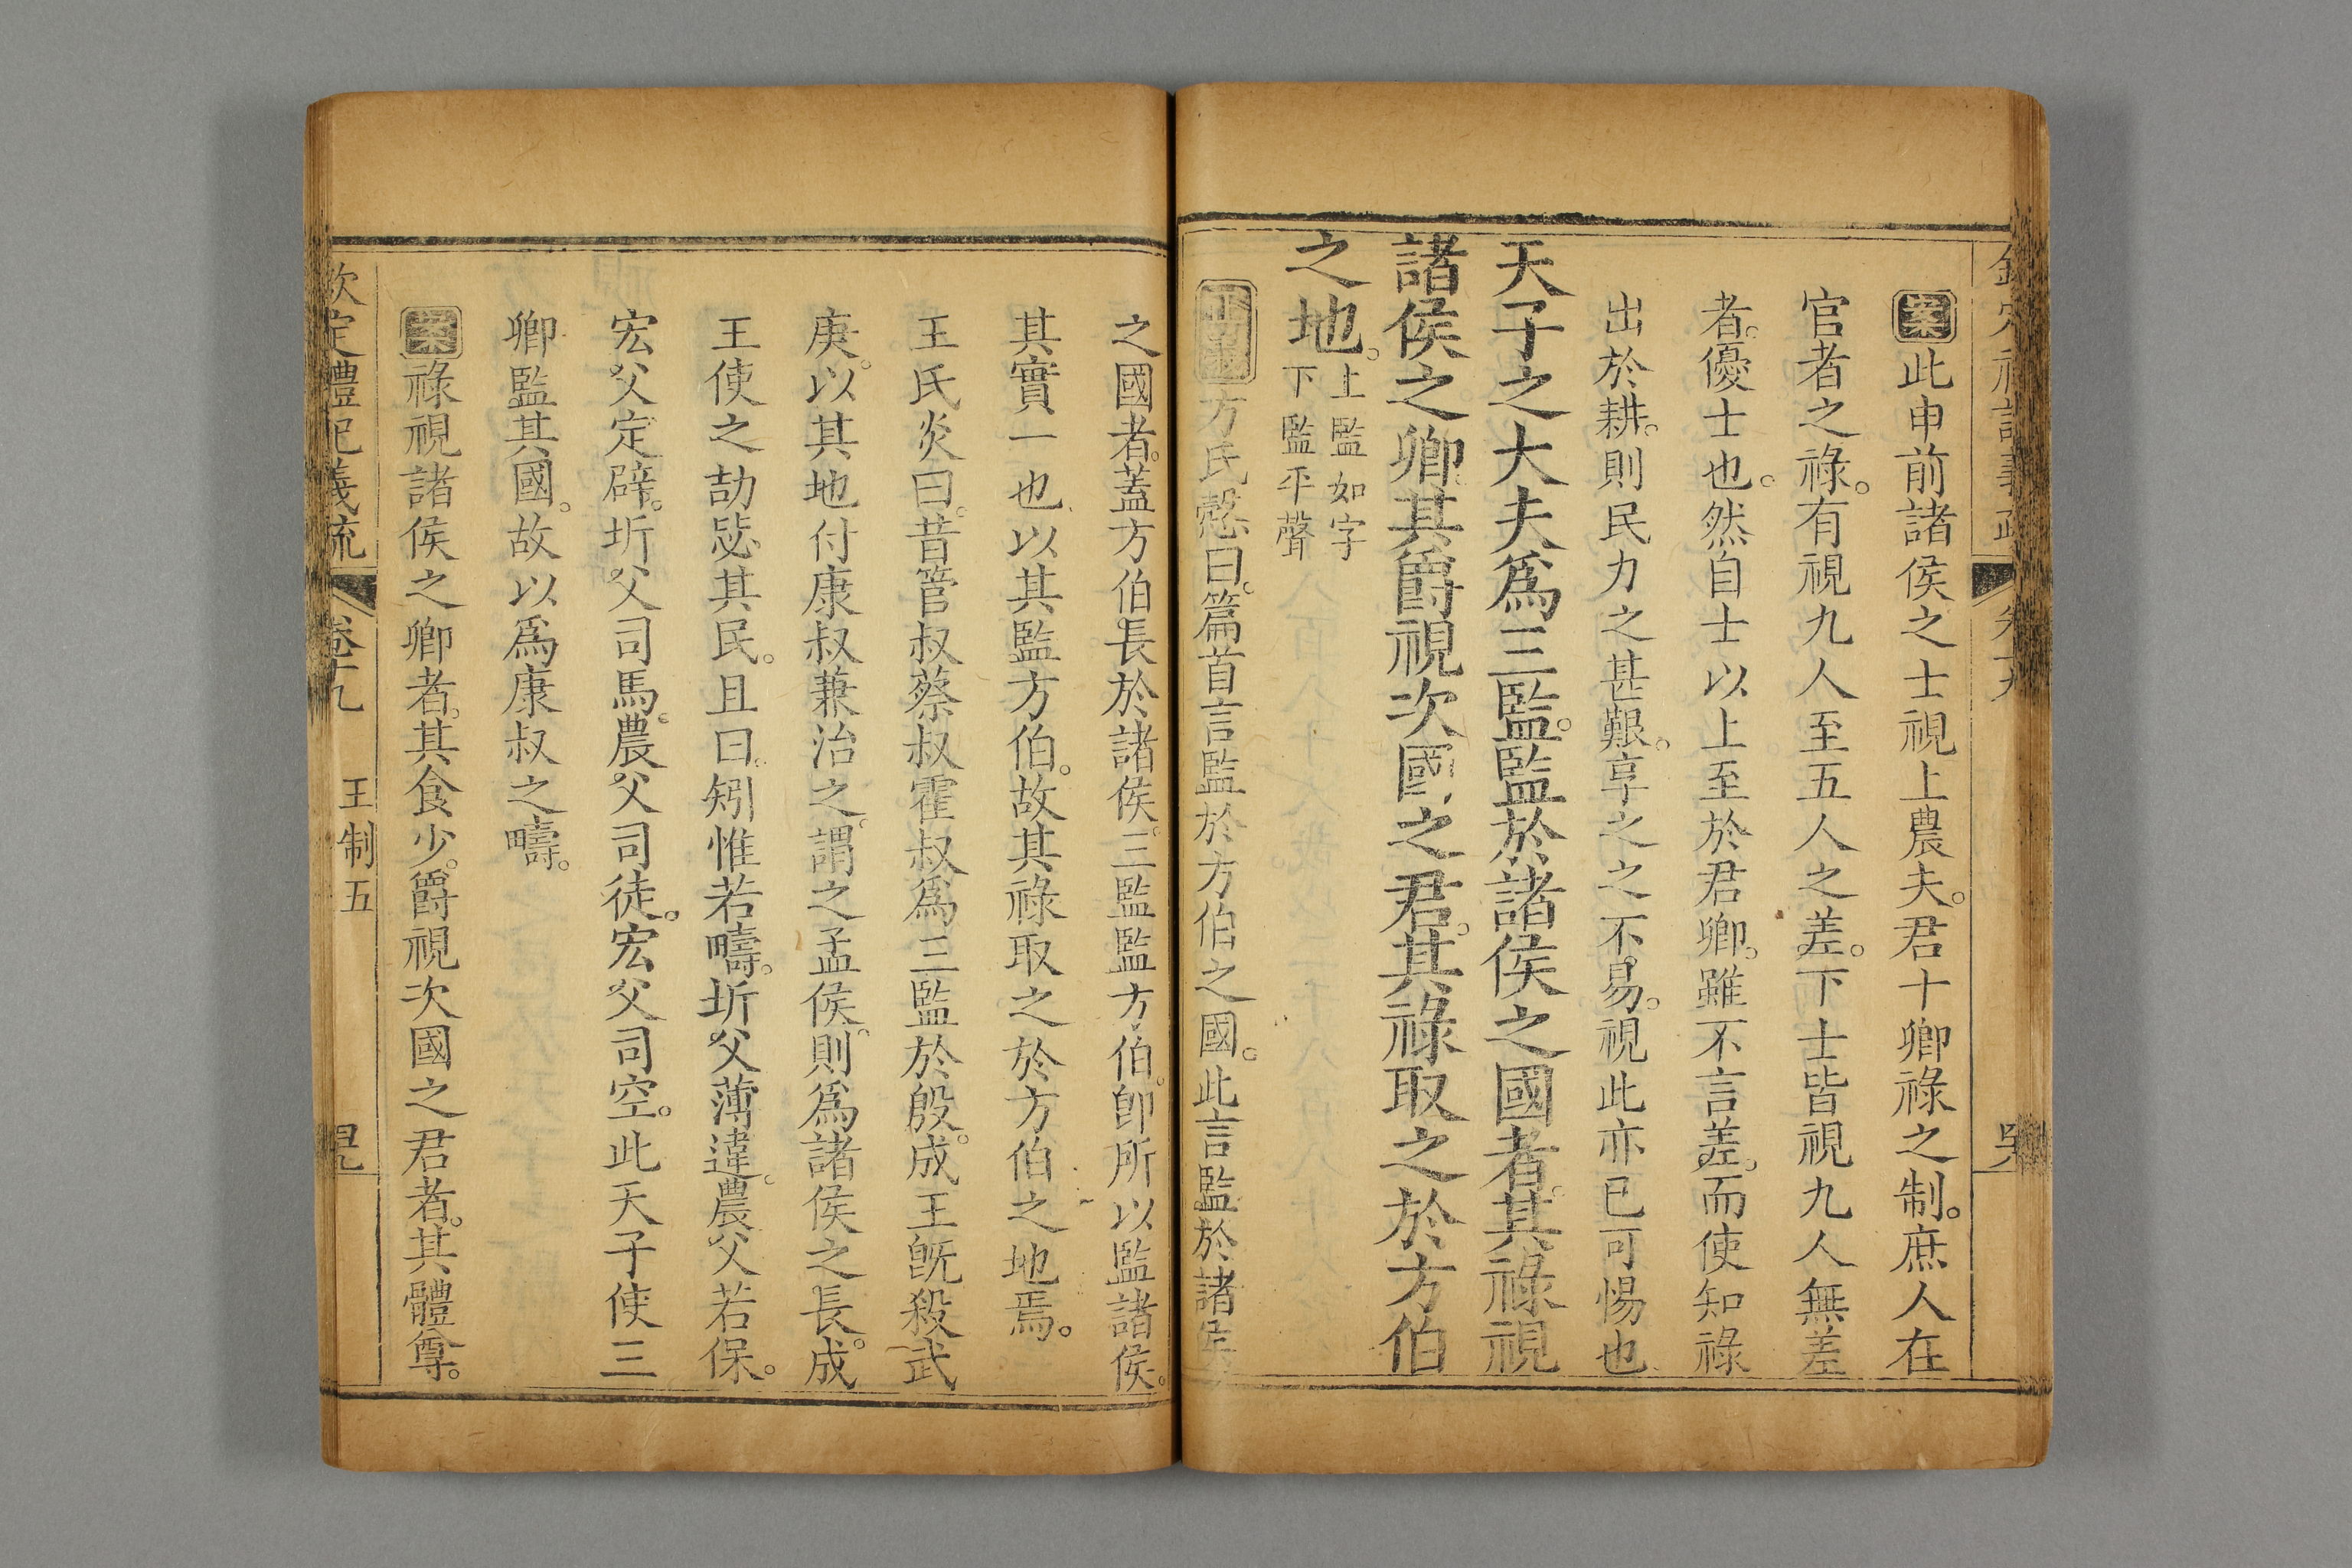 案此申前諸侯之士視上農夫。君十卿祿之制。庶人在
官者之祿。有視九人至五人之差。下士皆視九人無差
者。優士也。然自士以上至於君卿。雖不言差。而使知祿
出於耕。則民力之甚艱。享之之不易。視此亦已可惕也
天子之大夫爲三監。監於諸侯之國者。其祿視
諸侯之卿其爵視次國之君。其祿取之於方伯
之地。上監如字
下監平聲
正義方氏慤曰。篇首言監於方伯之國。此言監於諸侯
之國者。蓋方伯。長於諸侯。三監監方伯。卽所以監諸侯。
其實一也。以其監方伯。故其祿取之於方伯之地焉。
王氏炎曰。昔管叔蔡叔霍叔爲三監於殷。成王旣殺武
庚。以其地付康叔兼治之。謂之孟侯。則爲諸侯之長。成
王使之劼毖其民。且曰。矧惟若疇。圻父薄違。農父若保。
宏父定辟。圻父司馬。農父司徒。宏父司空。此天子使三
卿監其國。故以爲康叔之疇。
案祿視諸侯之卿者。其食少。爵視次國之君者。其體尊。
欽定禮記義疏 卷十九 王制五